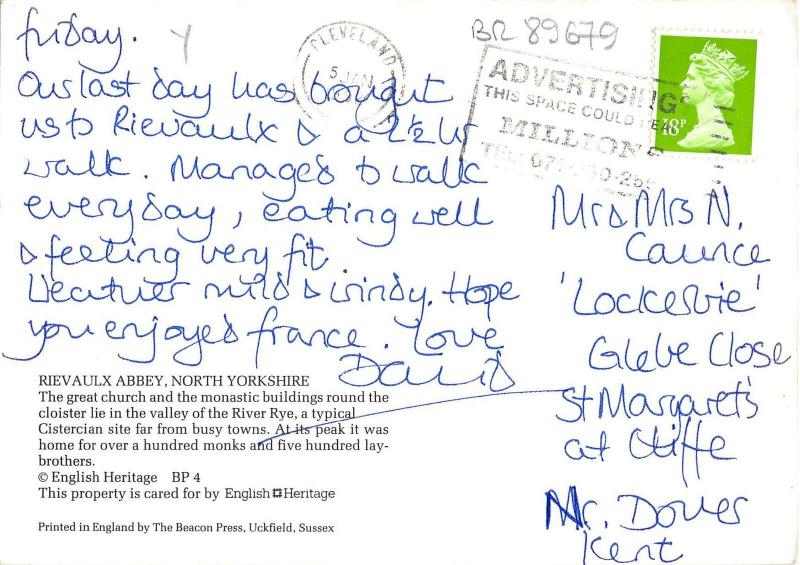 friday.
Our last day has bought
us to Rievaulx & a 2½ hr
walk. Managed to walk
everyday, eating well
& feeling very fit
Weather mild & windy. Hope
you enjoyed france. Love
David
RIEVAULX ABBEY, NORTH YORKSHIRE
The great church and the monastic buildings round the
cloister lie in the valley of the River Rye, a typical
Cistercian site far from busy towns. At its peak it was
home for over a hundred monks and five hundred lay-
brothers.
© English Heritage BP 4
This property is cared for by English Heritage
Printed in England by The Beacon Press, Uckfield, Sussex
BR 89679
CLEVELAND
5 JAN
ADVERTISING
THIS SPACE COULD
MILLIONS
18P
Mr & Mrs N.
Caunce
'Lockerbie'
Glebe Close
St Margaret's
at Cliffe
Nr. Dover
Kent